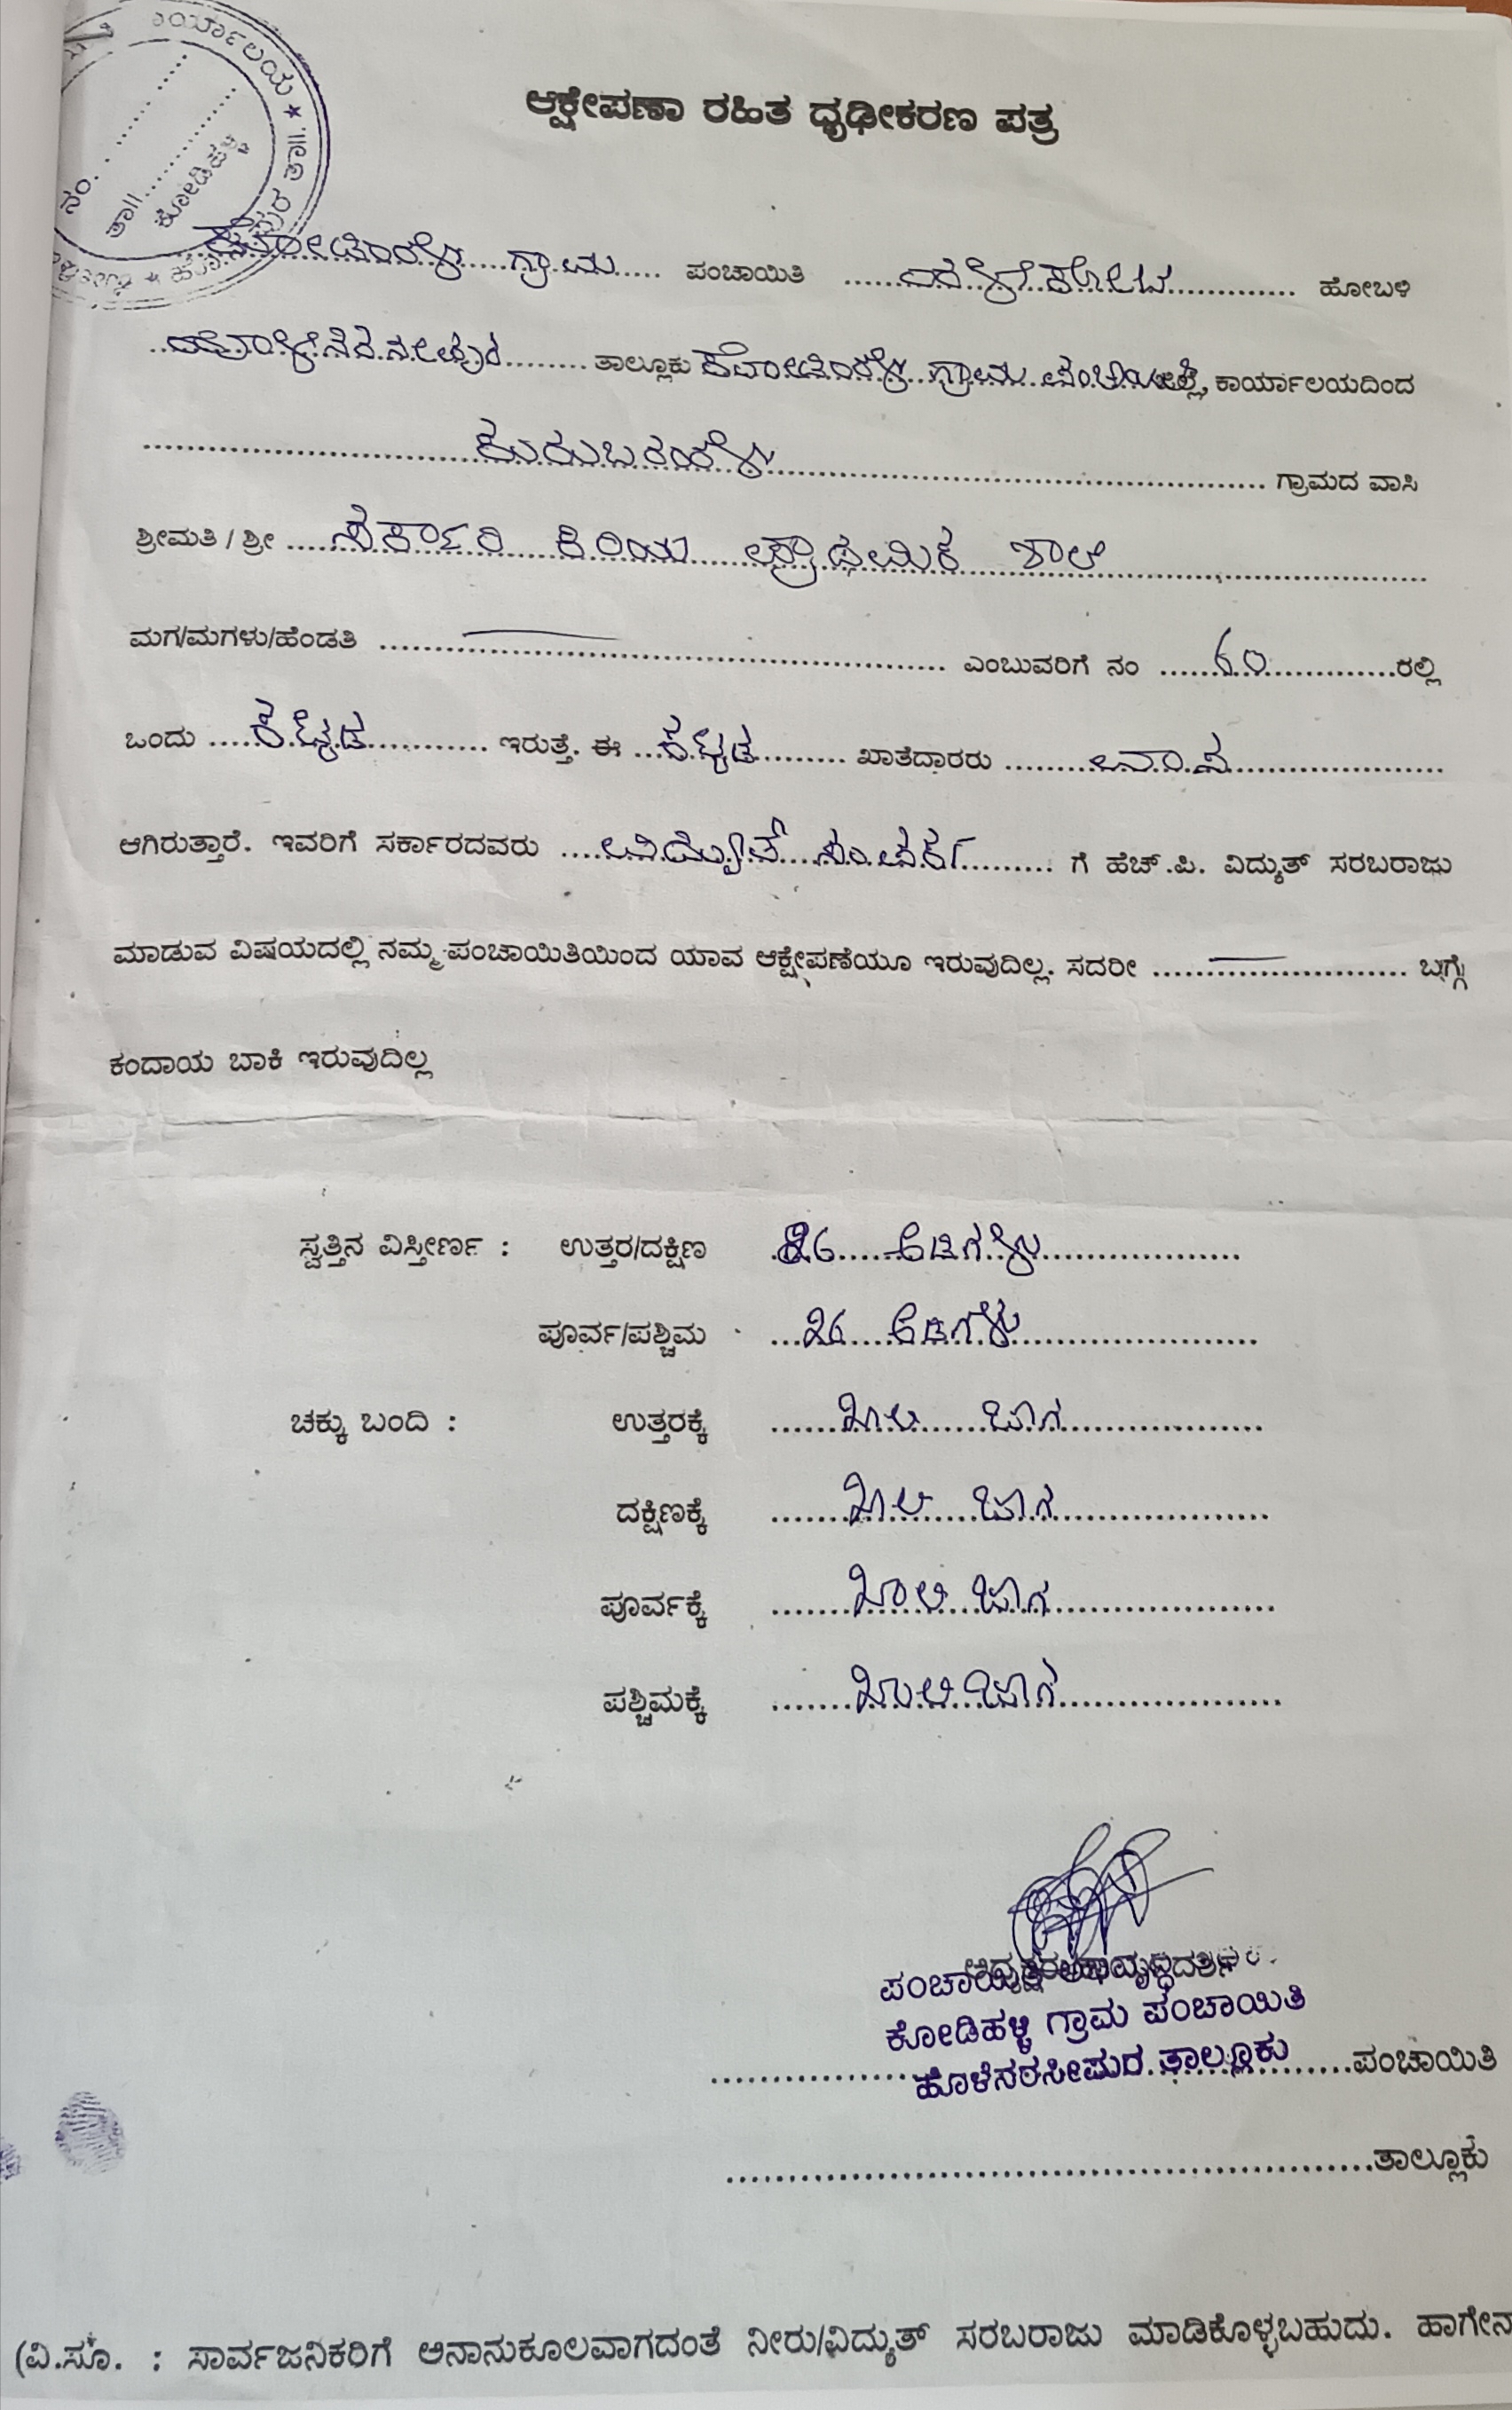 ಕಾರ್ಯಾಲಯ ★ ತಾ॥
ನಂ. ..............
ತಾ॥..............
ಕೋಡಿಹಳ್ಳಿ
ಆಕ್ಷೇಪಣಾ ರಹಿತ ಧೃಢೀಕರಣ ಪತ್ರ
ಕೋಡಿಹಳ್ಳಿ ಗ್ರಾಮ ಪಂಚಾಯಿತಿ ಹಳ್ಳಿಮೈಸೂರು ಹೋಬಳಿ
ಹೊಳೆನರಸೀಪುರ ತಾಲ್ಲೂಕು ಕೋಡಿಹಳ್ಳಿ ಗ್ರಾಮ ಪಂಚಾಯಿತಿ, ಕಾರ್ಯಾಲಯದಿಂದ
ಕುರುಬರಹಳ್ಳಿ ಗ್ರಾಮದ ವಾಸಿ
ಶ್ರೀಮತಿ / ಶ್ರೀ ಸರ್ಕಾರಿ ಕಿರಿಯ ಪ್ರಾಥಮಿಕ ಶಾಲೆ
ಮಗ/ಮಗಳು/ಹೆಂಡತಿ ಎಂಬುವರಿಗೆ ನಂ 60 ರಲ್ಲಿ
ಒಂದು ಕಟ್ಟಡ ಇರುತ್ತೆ. ಈ ಕಟ್ಟಡ ಖಾತೆದಾರರು
ಆಗಿರುತ್ತಾರೆ. ಇವರಿಗೆ ಸರ್ಕಾರದವರು ವಿದ್ಯುತ್ ಸಂಪರ್ಕ ಗೆ ಹೆಚ್.ಪಿ. ವಿದ್ಯುತ್ ಸರಬರಾಜು
ಮಾಡುವ ವಿಷಯದಲ್ಲಿ ನಮ್ಮ ಪಂಚಾಯಿತಿಯಿಂದ ಯಾವ ಆಕ್ಷೇಪಣೆಯೂ ಇರುವುದಿಲ್ಲ. ಸದರೀ ಬಗ್ಗೆ
ಕಂದಾಯ ಬಾಕಿ ಇರುವುದಿಲ್ಲ
ಸ್ವತ್ತಿನ ವಿಸ್ತೀರ್ಣ : ಉತ್ತರ/ದಕ್ಷಿಣ 26 ಅಡಿಗಳು
ಪೂರ್ವ/ಪಶ್ಚಿಮ 26 ಅಡಿಗಳು
ಚಕ್ಕು ಬಂದಿ : ಉತ್ತರಕ್ಕೆ ಖಾಲಿ ಜಾಗ
ದಕ್ಷಿಣಕ್ಕೆ ಖಾಲಿ ಜಾಗ
ಪೂರ್ವಕ್ಕೆ ಖಾಲಿ ಜಾಗ
ಪಶ್ಚಿಮಕ್ಕೆ ಖಾಲಿ ಜಾಗ
ಪಂಚಾಯಿತಿ
ಕೋಡಿಹಳ್ಳಿ ಗ್ರಾಮ ಪಂಚಾಯಿತಿ
ಹೊಳೆನರಸೀಪುರ ತಾಲ್ಲೂಕು ಪಂಚಾಯಿತಿ
ತಾಲ್ಲೂಕು
(ವಿ.ಸೂ. : ಸಾರ್ವಜನಿಕರಿಗೆ ಅನಾನುಕೂಲವಾಗದಂತೆ ನೀರು/ವಿದ್ಯುತ್ ಸರಬರಾಜು ಮಾಡಿಕೊಳ್ಳಬಹುದು. ಹಾಗೇನಾ